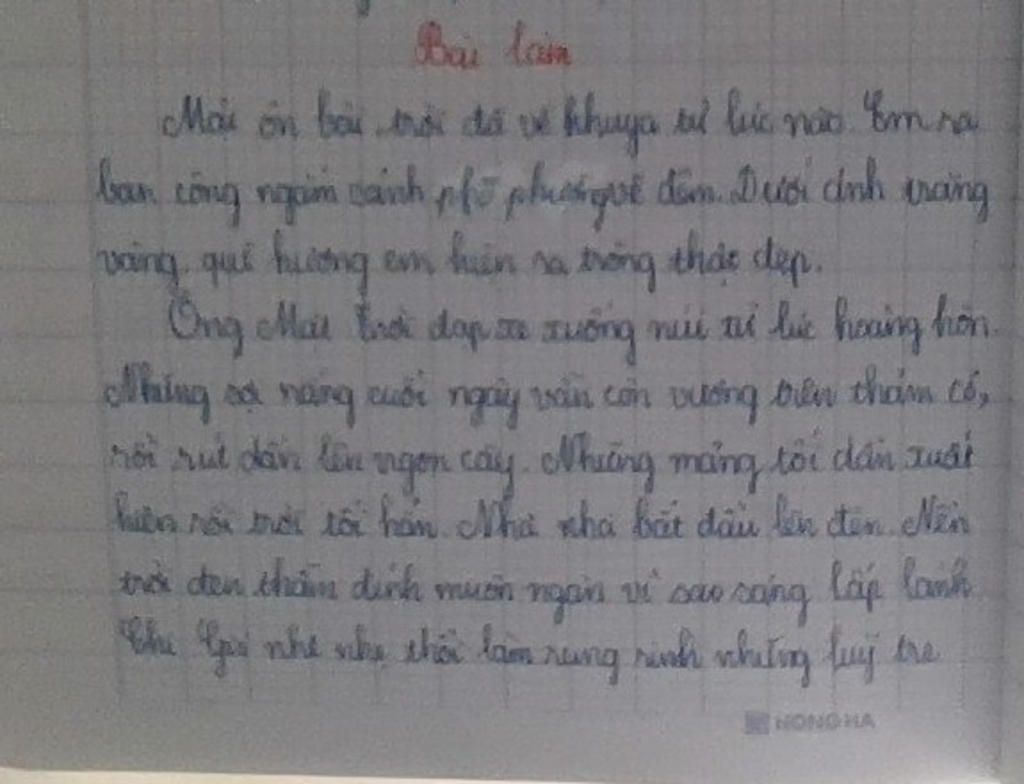 Bài làm
Mải ôn bài, trời đã về khuya từ lúc nào. Em ra
ban công ngắm cảnh phố phường về đêm. Dưới ánh trăng
vàng, quê hương em hiện ra trông thật đẹp.
Ông Mặt Trời đạp xe xuống núi từ lúc hoàng hôn.
Những sợi nắng cuối ngày vẫn còn vương trên thảm cỏ,
rồi rút dần lên ngọn cây. Những mảng tối dần xuất
hiện rồi trời tối hẳn. Nhà nhà bắt đầu lên đèn. Nền
trời đen thẫm đính muôn ngàn vì sao sáng lấp lánh
Chị Gió nhè nhẹ thổi làm rung rinh những luỹ tre
HONG HA